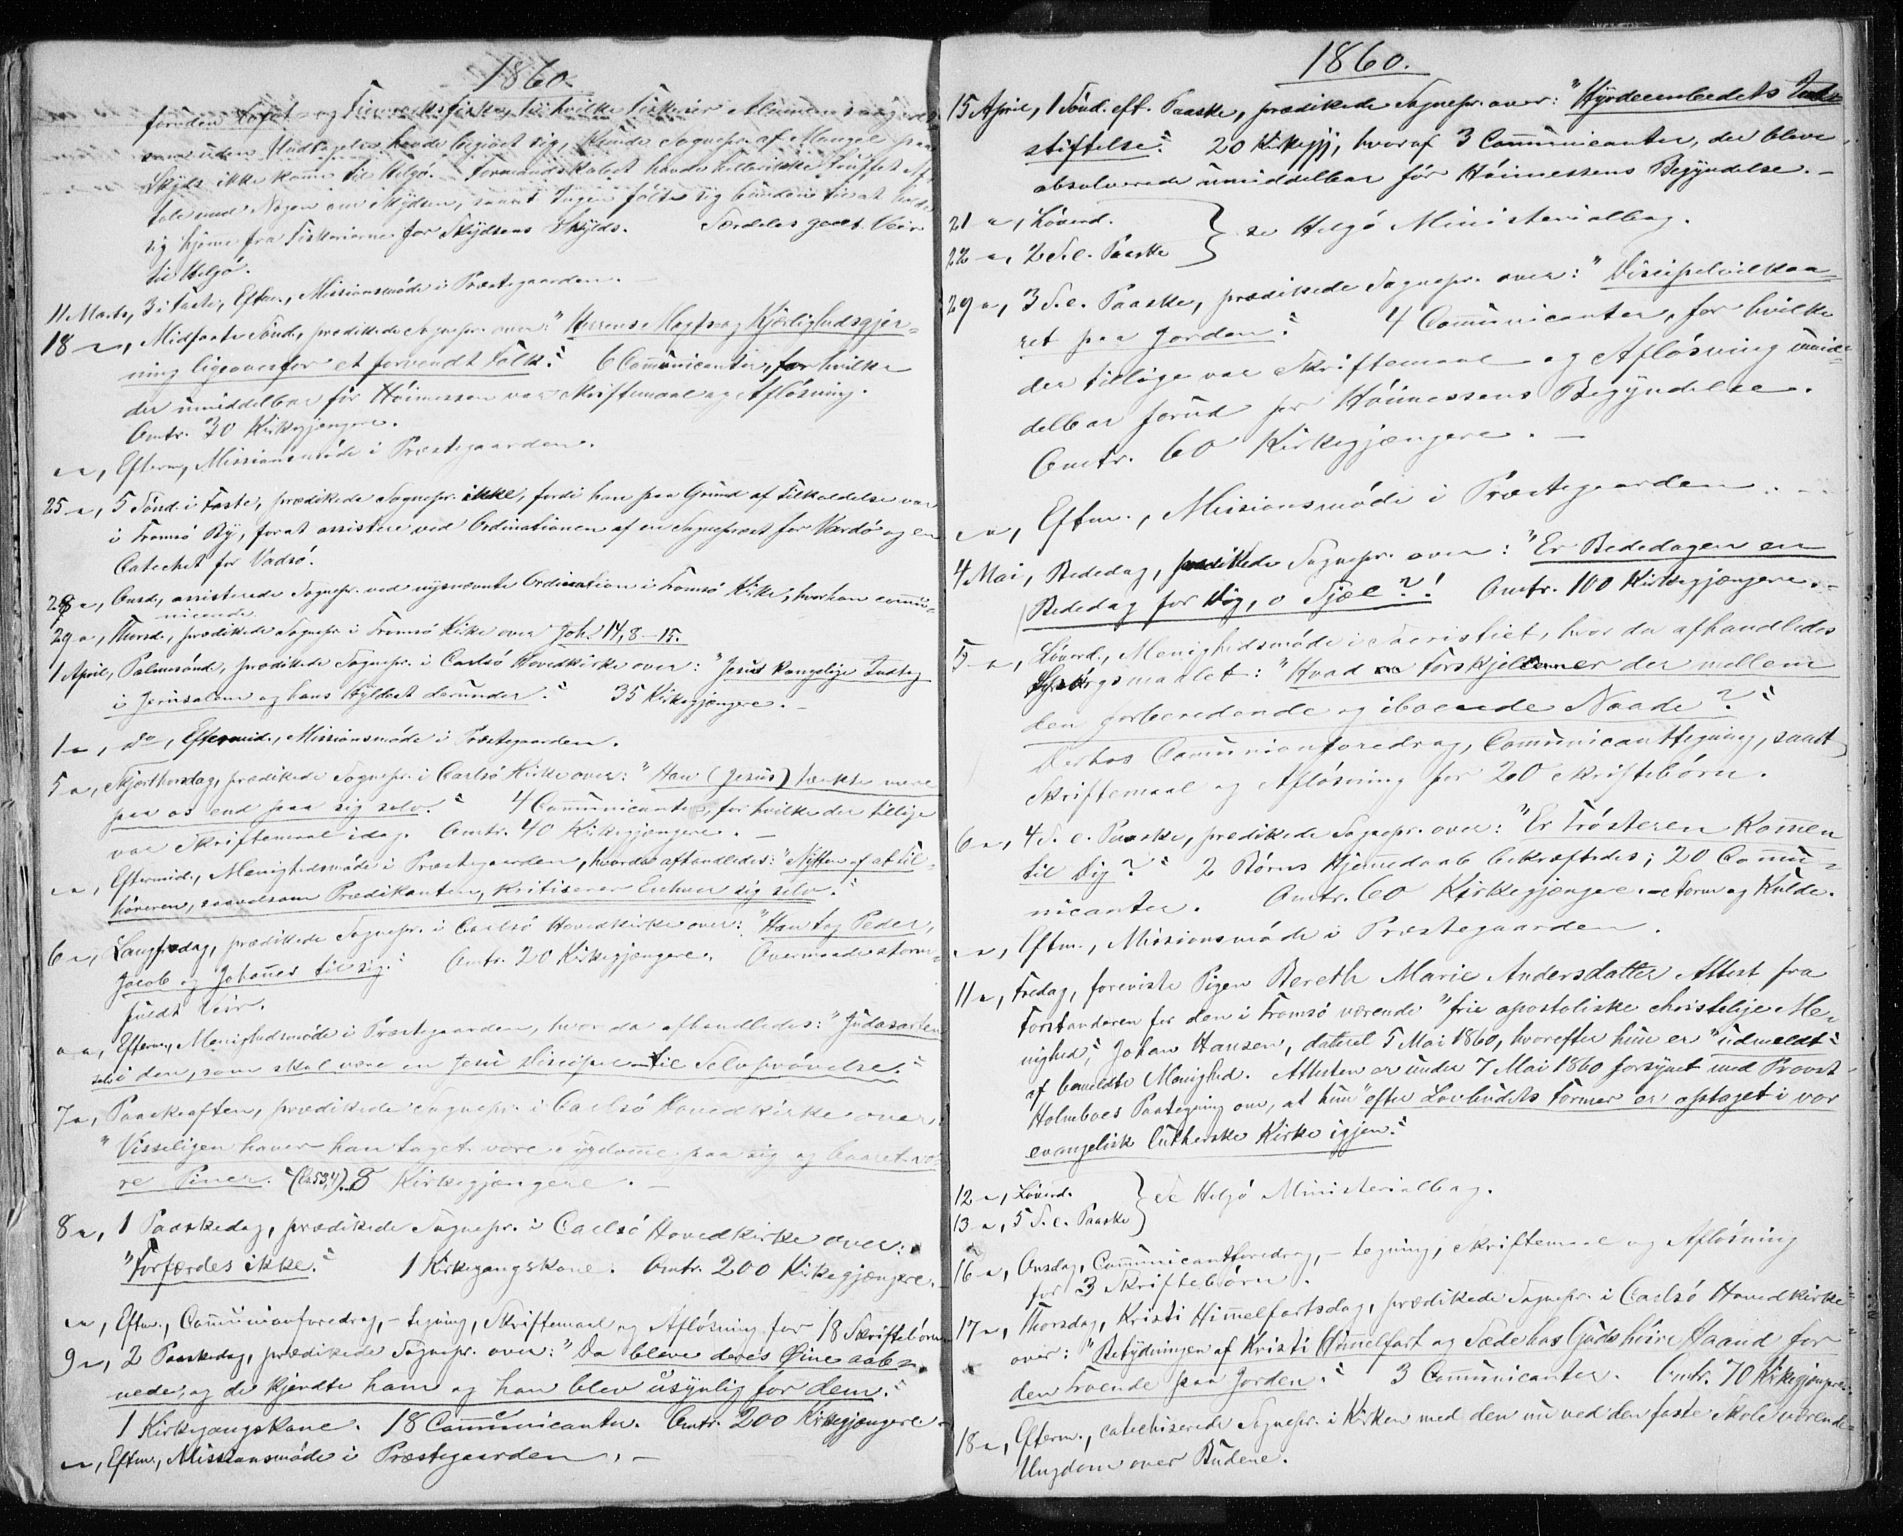 1860.
foruden Lofot- og Finmarksfisket, til hvilke Fiskerier Almuen saagodt
som uden Undtagelse havde begivet sig, kunde Sognepr. af Mangel paa
Skyds ikke komme til Helgö. Formandskabet havde heller ikke truffet Af-
tale med Nogen om Skydsen, samt Ingen fölte sig bunden til at holde
sig hjemme fra Fiskerierne for Skydsens Skyld. Særdeles godt Veir
til Helgö.
11 Marts, 3 i Faste, Efterm., Missionsmöde i Præstegaarden. —
18 —, Midfaste Sönd., prædikede Sognepr. over: "Herrens Magts og Kjærlighedsgjer-
ning ligeoverfor et forvendt Folk." 6 Communicanter, for hvilke
der umiddelbar för Höimessen var Skriftemaal og Aflösning.
Omtr. 30 Kirkegjængere.
—, Efterm., Missionsmöde i Præstegaarden.
25 —, 5 Sönd. i Faste, prædikede Sognepr. ikke, fordi han paa Grund af Tilkaldelse var
i Tromsö By, for at assistere ved Ordinationen af en Sognepræst for Vardö og en
Catechet for Vadsö.
28 —, Onsd., assisterede Sognepr. ved nysnævnte Ordination i Tromsö Kirke, hvor han commu-
nicerede
29 —, Thorsd., prædikede Sognepr. i Tromsö Kirke over Joh. 14, 8—15.
1 April, Palmesönd., prædikede Sognepr. i Carlsö Hovedkirke over: "Jesu kongelige Indtog
i Jerusalem og hans Hyldest derunder." 35 Kirkegjængere. —
1 —, do, Eftermid., Missionsmöde i Præstegaarden.
5 —, Skjærthorsdag, prædikede Sognepr. i Carlsö Kirke over: "Han (Jesus) tænkte mere
paa os end paa sig selv." 4 Communicanter, for hvilke der tillige
var Skriftemaal idag. Omtr. 40 Kirkegjængere. —
—, Eftermid., Menighedsmöde i Præstegaarden, hvor da afhandledes: "Nytten af at Til-
höreren, saavelsom Prædikanten, kritiserer Enhver sig selv."
6 —, Langfredag, prædikede Sognepr. i Carlsö Hovedkirke over: "Han tog Peder,
Jacob og Johannes til sig." Omtr. 20 Kirkegjængere. Overmaade storm-
fuldt Veir.
—, Efterm., Menighedsmöde i Præstegaarden, hvor da afhandledes: "Judasarten
selv i den, som skal være en Jesu Discipel — til Selvprövelse."
7 —, Paaskeaften, prædikede Sognepr. i Carlsö Hovedkirke over:
"Visseligen haver han taget vore Sygdomme paa sig og baaret vo-
re Piner." (Es 53,4). 8 Kirkegjængere. —
8 —, 1 Paaskedag, prædikede Sognepr. i Carlsö Hovedkirke over:
"Forfærdes ikke." 1 Kirkegangskone. Omtr. 200 Kirkegjængere. —
—, Eftm., Communionforedrag, - tegning, Skriftemaal og Aflösning for 18 Skriftebörn
9 —, 2 Paaskedag, prædikede Sognepr. over: "Da bleve deres Øine aab-
nede, og de kjendte ham og han blev usynlig for dem."
1 Kirkegangskone. 18 Communicanter. Omtr. 200 Kirkegjængere —
—, Eftm., Missionsmöde i Præstegaarden. —
1860.
15 April, 1 Sönd. eft. Paaske, prædikede Sognepr. over: "Hyrdeembedets Ind-
stiftelse." 20 Kirkegj., hvoraf 3 Communicanter, der bleve
absolverede umiddelbar för Höimessens Begyndelse. —
21 —, Löverd.
22 —, 2 S. e. Paaske } se Helgö Ministerialbog.
29 —, 3 S. e. Paaske, prædikede Sognepr. over: "Discipelvilkaa-
ret paa Jorden." 4 Communicanter, for hvilke
der tillige var Skriftemaal og Aflösning umid-
delbar forud for Höimessens Begyndelse.
Omtr. 60 Kirkegjængere. —
—, Eftm., Missionsmöde i Præstegaarden. —
4 Mai, Bededag, prædikede Sognepr. over: "Er Bededagen en
Bededag for dig, o Sjæl?"! Omtr. 100 Kirkegjængere. —
5 —, Löverd., Menighedsmöde i Sacristiet, hvor da afhandledes
Spörgsmaalet: "Hvad Forskjellen er der mellem
den forberedende og iboende Naade?"
Derhos Communionforedrag, Communicanttegning, samt
Skriftemaal og Aflösning for 20 Skriftebörn.
6 —, 4 S. e. Paaske, prædikede Sognepr. over: "Er Trösteren kommen
til Dig?" 2 Börns Hjemmedaab bekræftedes; 20 Commu-
nicanter. Omtr. 60 Kirkegjængere. — Storm og Kulde.
—, Eftm., Missionsmöde i Præstegaarden.
11 —, Fredag, foreviste Pigen Bereth Marie Andersdatter Attest fra
Forstanderen for den i Tromsö værende "frie apostoliske christelige Me-
nighed", Johan Hansen, dateret 5 Mai 1860, hvorefter hun er "udmeldt"
af bemeldte Menighed. Attesten er under 7 Mai 1860 forsynet med Provst
Holmboes Paategning om, at hun "efter Lovbudets Former er optaget i vor
evangelisk lutherske Kirke igjen."
12 —, Löverd.
13 —, 5 S. e. Paaske } Se Helgö Ministerialbog.
16 —, Onsdag, Communicantforedrag, - tegning, Skriftemaal og Aflösning
for 3 Skriftebörn.
17 —, Thorsdag, Kristi Himmelfartsdag, prædikede Sognepr. i Carlsö Hovedkirke
over: "Betydningen af Kristi Himmelfart og Sæde hos Guds höire Haand for
den Troende paa Jorden." 3 Communicanter. Omtr. 70 Kirkegjængere.
18 —, Efterm., catechiserede Sognepr. i Kirken med den nu ved den faste Skole værende
Ungdom over Budene.